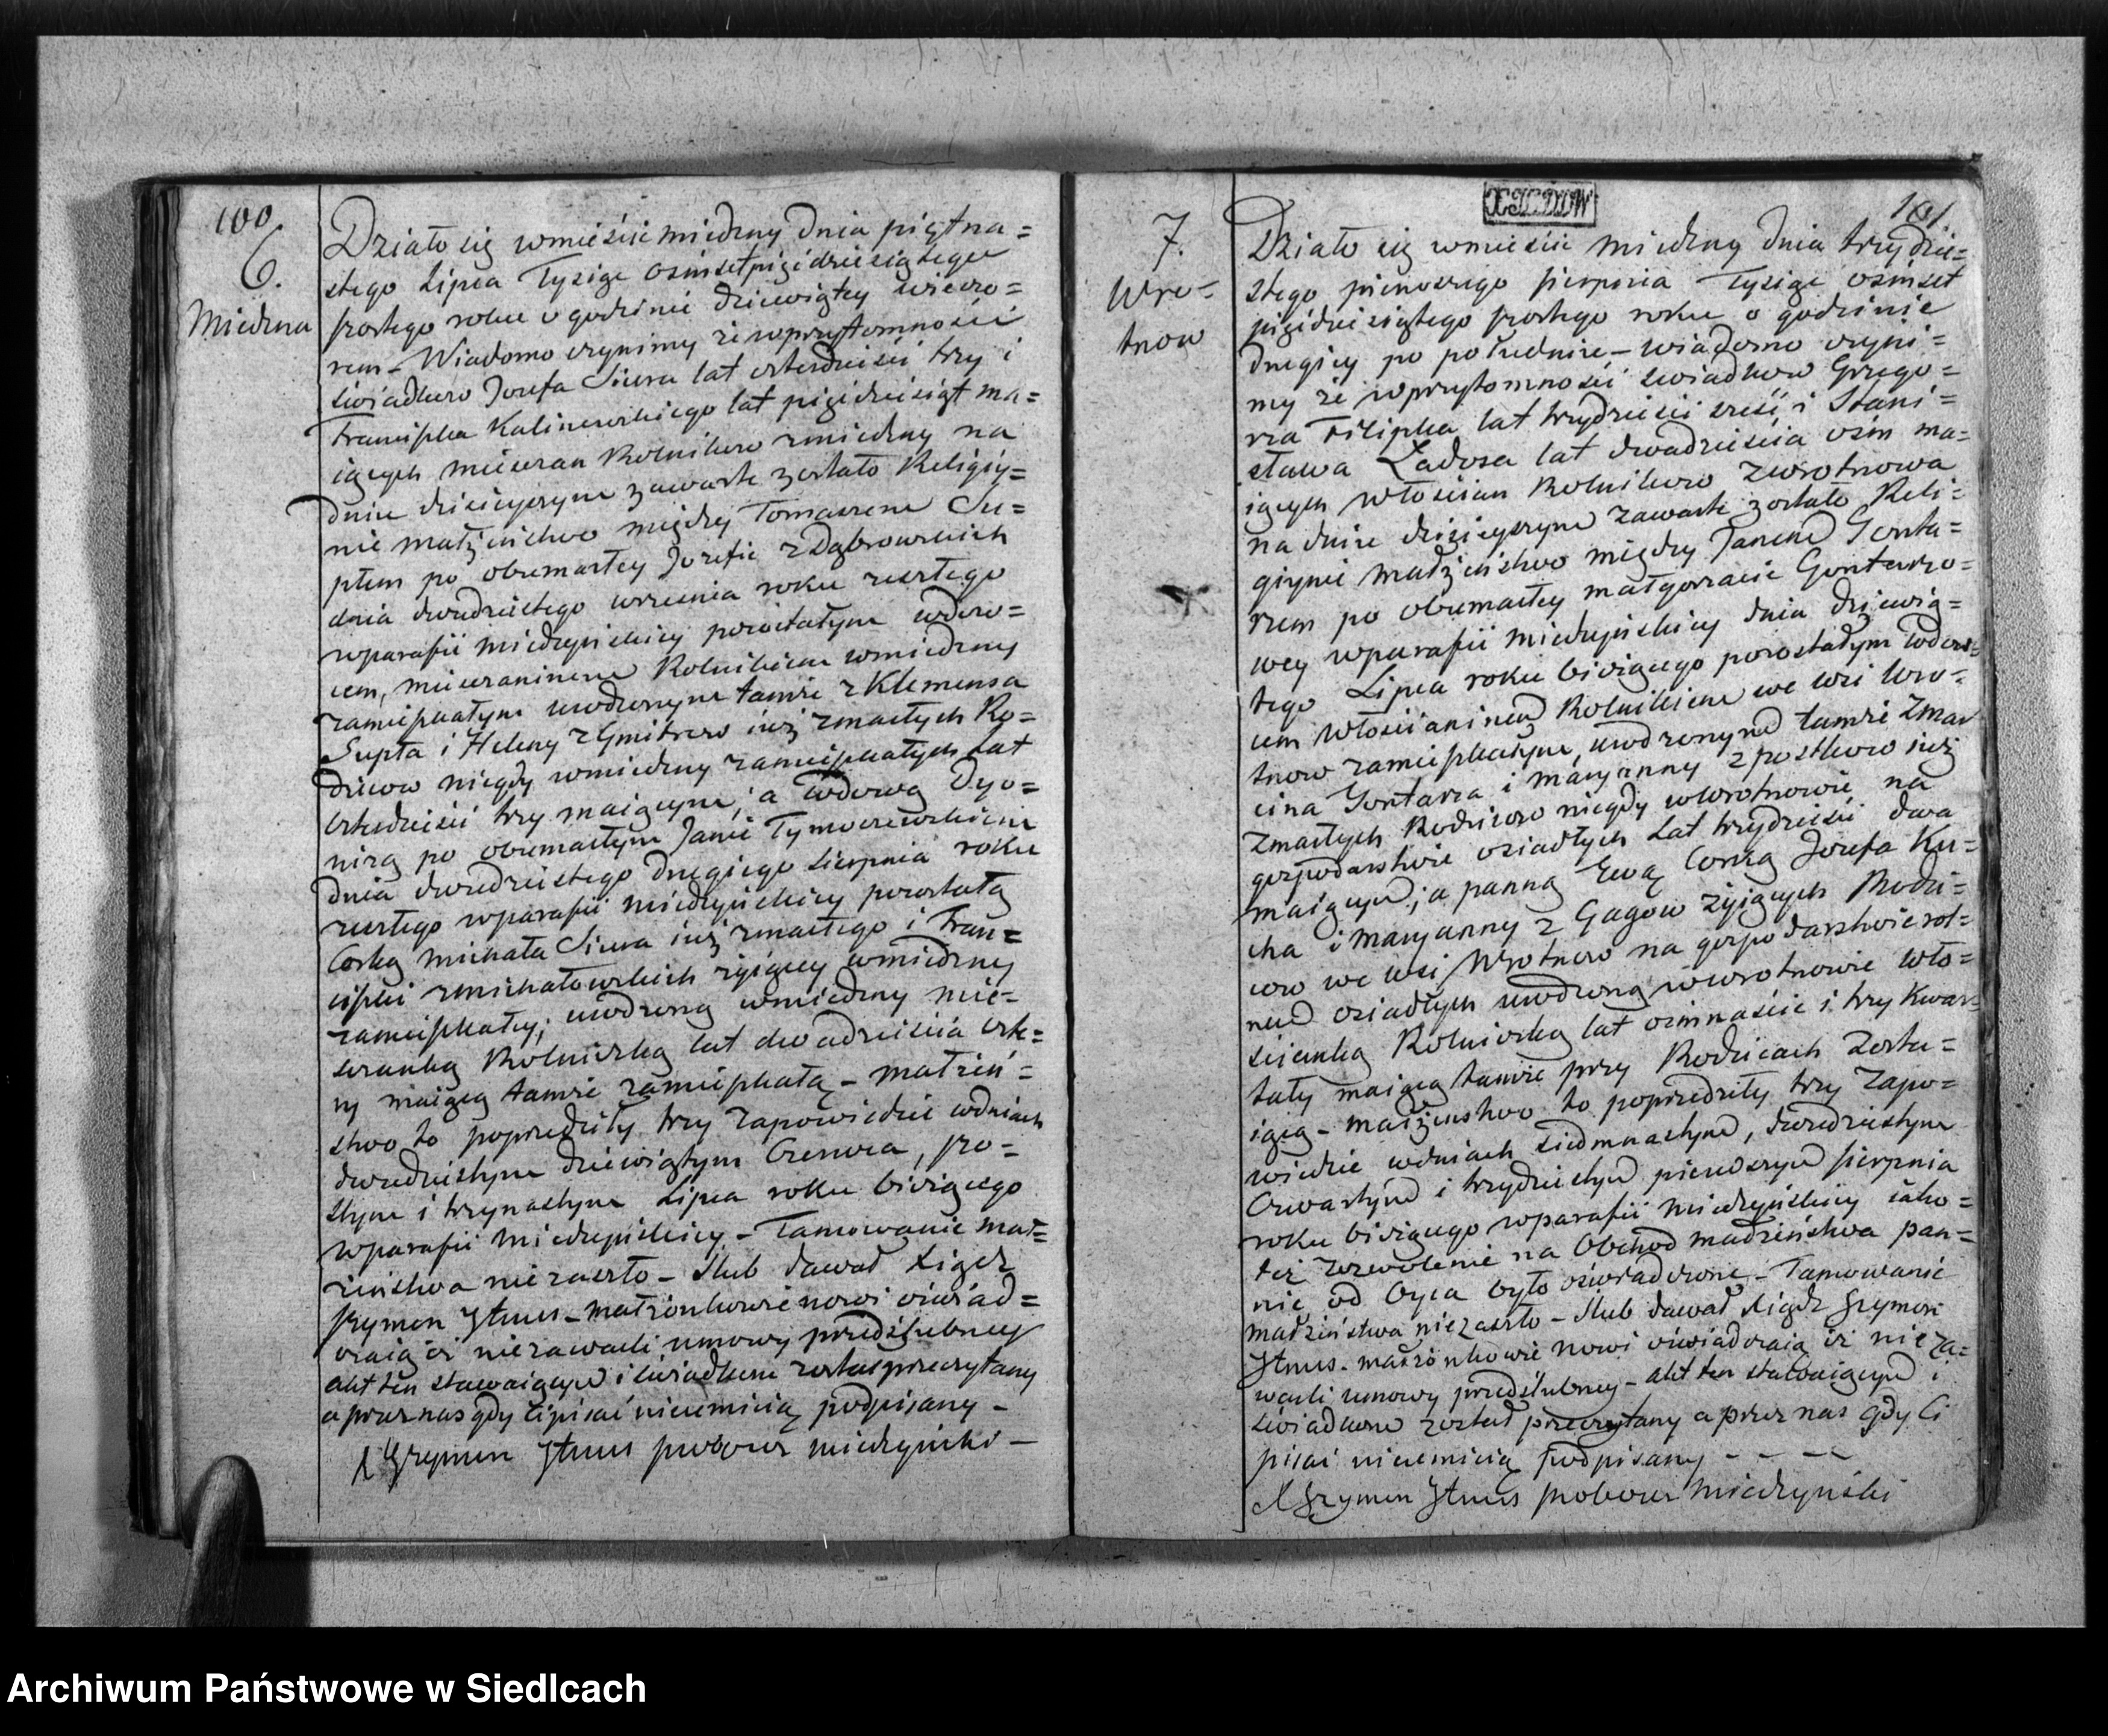 100.
6.
Miedzna
Działo się wmieście miedzny Dnia piętna=
stego Lipca Tysiąc ośmset pięćdziesiątego
szostego roku o godzinie dziewiątey wieczo=
rem – Wiadomo czynimy że wprzytomności
świadkow Jozefa Siura lat czterdzieści trzy i
Franciszka Kalinowskiego lat pięćdziesiąt ma=
iących mieszczan Rolnikow zmiedzny na
dniu dzisieyszym zawarte zostało Religiy=
nie małżeństwo między Tomaszem Su=
płem po obumarłey Jozefie z Dąbrowskich
dnia dwudziestego września roku zeszłego
wparafii miedzyńskiey pozostałym wdow=
cem, mieszczaninem Rolnikiem wmiedzny
zamieszkałym urodzonym tamże z Klemensa
Supła i Heleny z Gmitrow iuż zmarłych Ro=
dzicow niegdy wmiedzny zamieszkałych lat
czterdzieści trzy maiącym; a Wdową Dyo=
nizą po obumarłym Janie Tymoszewskim
dnia dwudziestego drugiego Sierpnia roku
zeszłego wparafii miedzyńskiey pozostałą
Corką michała Siura iuż zmarłego i Fran=
ciszki zmichałowskich żyiącey wmiedzny
zamieszkałey; urodzoną wmiedzny mie=
szczanką Rolniczką lat dwadzieścia czte=
ry maiącą tamże zamieszkałą – małżeń=
stwo to poprzedziły trzy zapowiedzie wdniach
dwudziestym dziewiątym Czerwca, szo=
stym i trzynastym Lipca roku bieżącego
wparafii miedzyńskiey – Tamowanie mał=
żeństwa niezaszło – Ślub dawał Xiądz
Szymon Jtnus – małżonkowie nowi oświad=
czaią iż niezawarli umowy przedślubney
akt ten stawaiącym i świadkom został przeczytany
a przez nas gdy Ci pisać nieumieią podpisany –
X Szymon Jtnus proboszcz miedzyński –
101.
7.
Wro=
tnow
Działo się wmieście miedzny Dnia trzydzie=
stego pierwszego sierpnia Tysiąc ośmset
pięćdziesiątego szostego roku o godzinie
drugiey po południu – wiadomo czyni=
my że wprzytomności świadkow Grzego=
rza Filipka lat trzydzieści sześć i Stani=
sława Ładosa lat dwadzieścia ośm ma=
iących Włościan Rolnikow zwrotnowa
na dniu dzisieyszym zawarte zostało Reli=
giynie małżeństwo między Janem Gonta=
rzem po obumarłey małgorzacie Gontarzo=
wey wparafii miedzyńskiey dnia dziewią=
tego Lipca roku bieżącego pozostałym wdow=
cem Włościaninem Rolnikiem we wsi Wro=
tnow zamieszkałym, urodzonym tamże z Mar
cina Gontarza i maryanny z postkow iuż
zmarłych Rodzicow niegdy wwrotnowie na
gospodarstwie osiadłych lat trzydzieści dwa
maiącym; a panną Ewą Corką Jozefa Ku=
cha i maryanny z Gagow żyiących Rodzi=
cow we wsi Wrotnow na gospodarstwie rol=
nem osiadłych urodzoną wwrotnowie wło=
ścianką Rolniczką lat ośmnaście i trzy Kwar=
tały maiącą tamże przy Rodzicach zosta=
iącą – małżeństwo to poprzedziły trzy zapo=
wiedzie wdniach siedmnastym, dwudziestym
Czwartym i trzydziestym pierwszym sierpnia
roku bieżącego wparafii miedzyńskiey iako=
też zezwolenie na Obchod małżeństwa pan=
nie od Oyca było oświadczone – Tamowanie
małżeństwa niezaszło – Ślub dawał Xiądz Szymon
Jtnus – małżonkowie nowi oświadczaią iż nieza=
warli umowy przedślubney – akt ten stawaiącym i
świadkom został przeczytany a przez nas gdy Ci
pisać nieumieią podpisany – – – –
X Szymon Jtnus proboszcz miedzyński
Archiwum Państwowe w Siedlcach